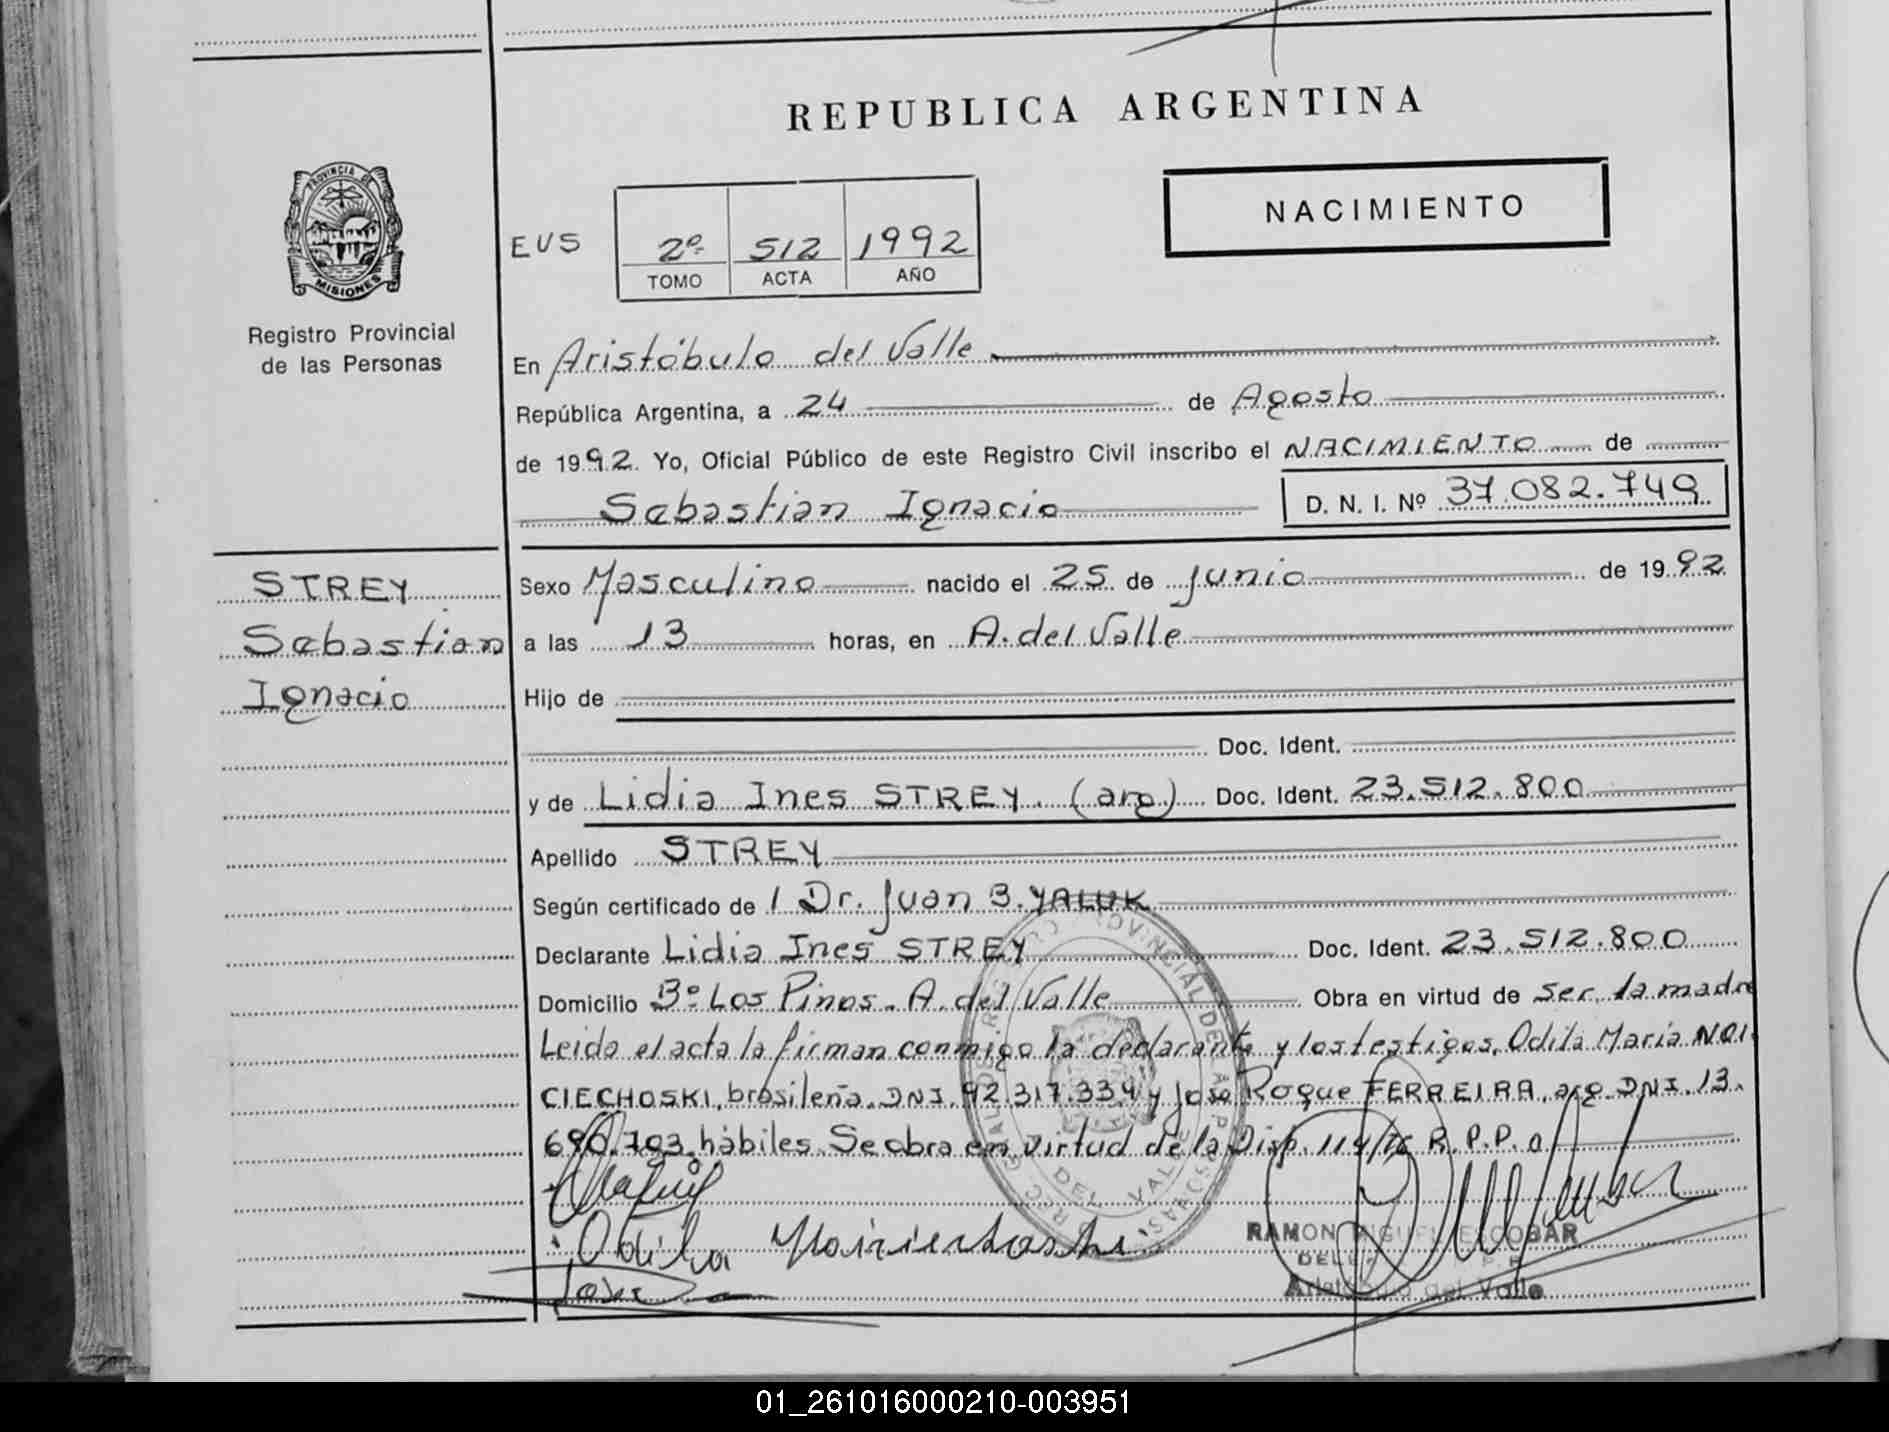 REPUBLICA ARGENTINA
NACIMIENTO
PROVINCIA DE
MISIONES
Registro Provincial
de las Personas
EUS
2º 512 1992
TOMO ACTA AÑO
En Aristóbulo del Valle
República Argentina, a 24 de Agosto
de 1992. Yo, Oficial Público de este Registro Civil inscribo el NACIMIENTO de
Sebastian Ignacio D. N. I. Nº 37.082.749
STREY
Sebastian
Ignacio
Sexo Masculino nacido el 25 de Junio de 1992
a las 13 horas, en A. del Valle
Hijo de
Doc. Ident.
y de Lidia Ines STREY. (arg) Doc. Ident. 23.512.800
Apellido STREY
Según certificado de / Dr. Juan B. YALUK
Declarante Lidia Ines STREY Doc. Ident. 23.512.800
Domicilio Bº Los Pinos. A. del Valle Obra en virtud de ser la madre
Leida el acta la firman conmigo la declarante y los testigos, Odila Maria NOI-
CIECHOSKI, brasileña. DNI. 92.317.334 y Jose Roque FERREIRA, arg. DNI. 13.
690.703. hábiles. Se obra en virtud de la Disp. 114/76 R. P. P. a/
Odila
Jose
RAMON MIGUEL ESCOBAR
Aristóbulo del Valle
01_261016000210-003951